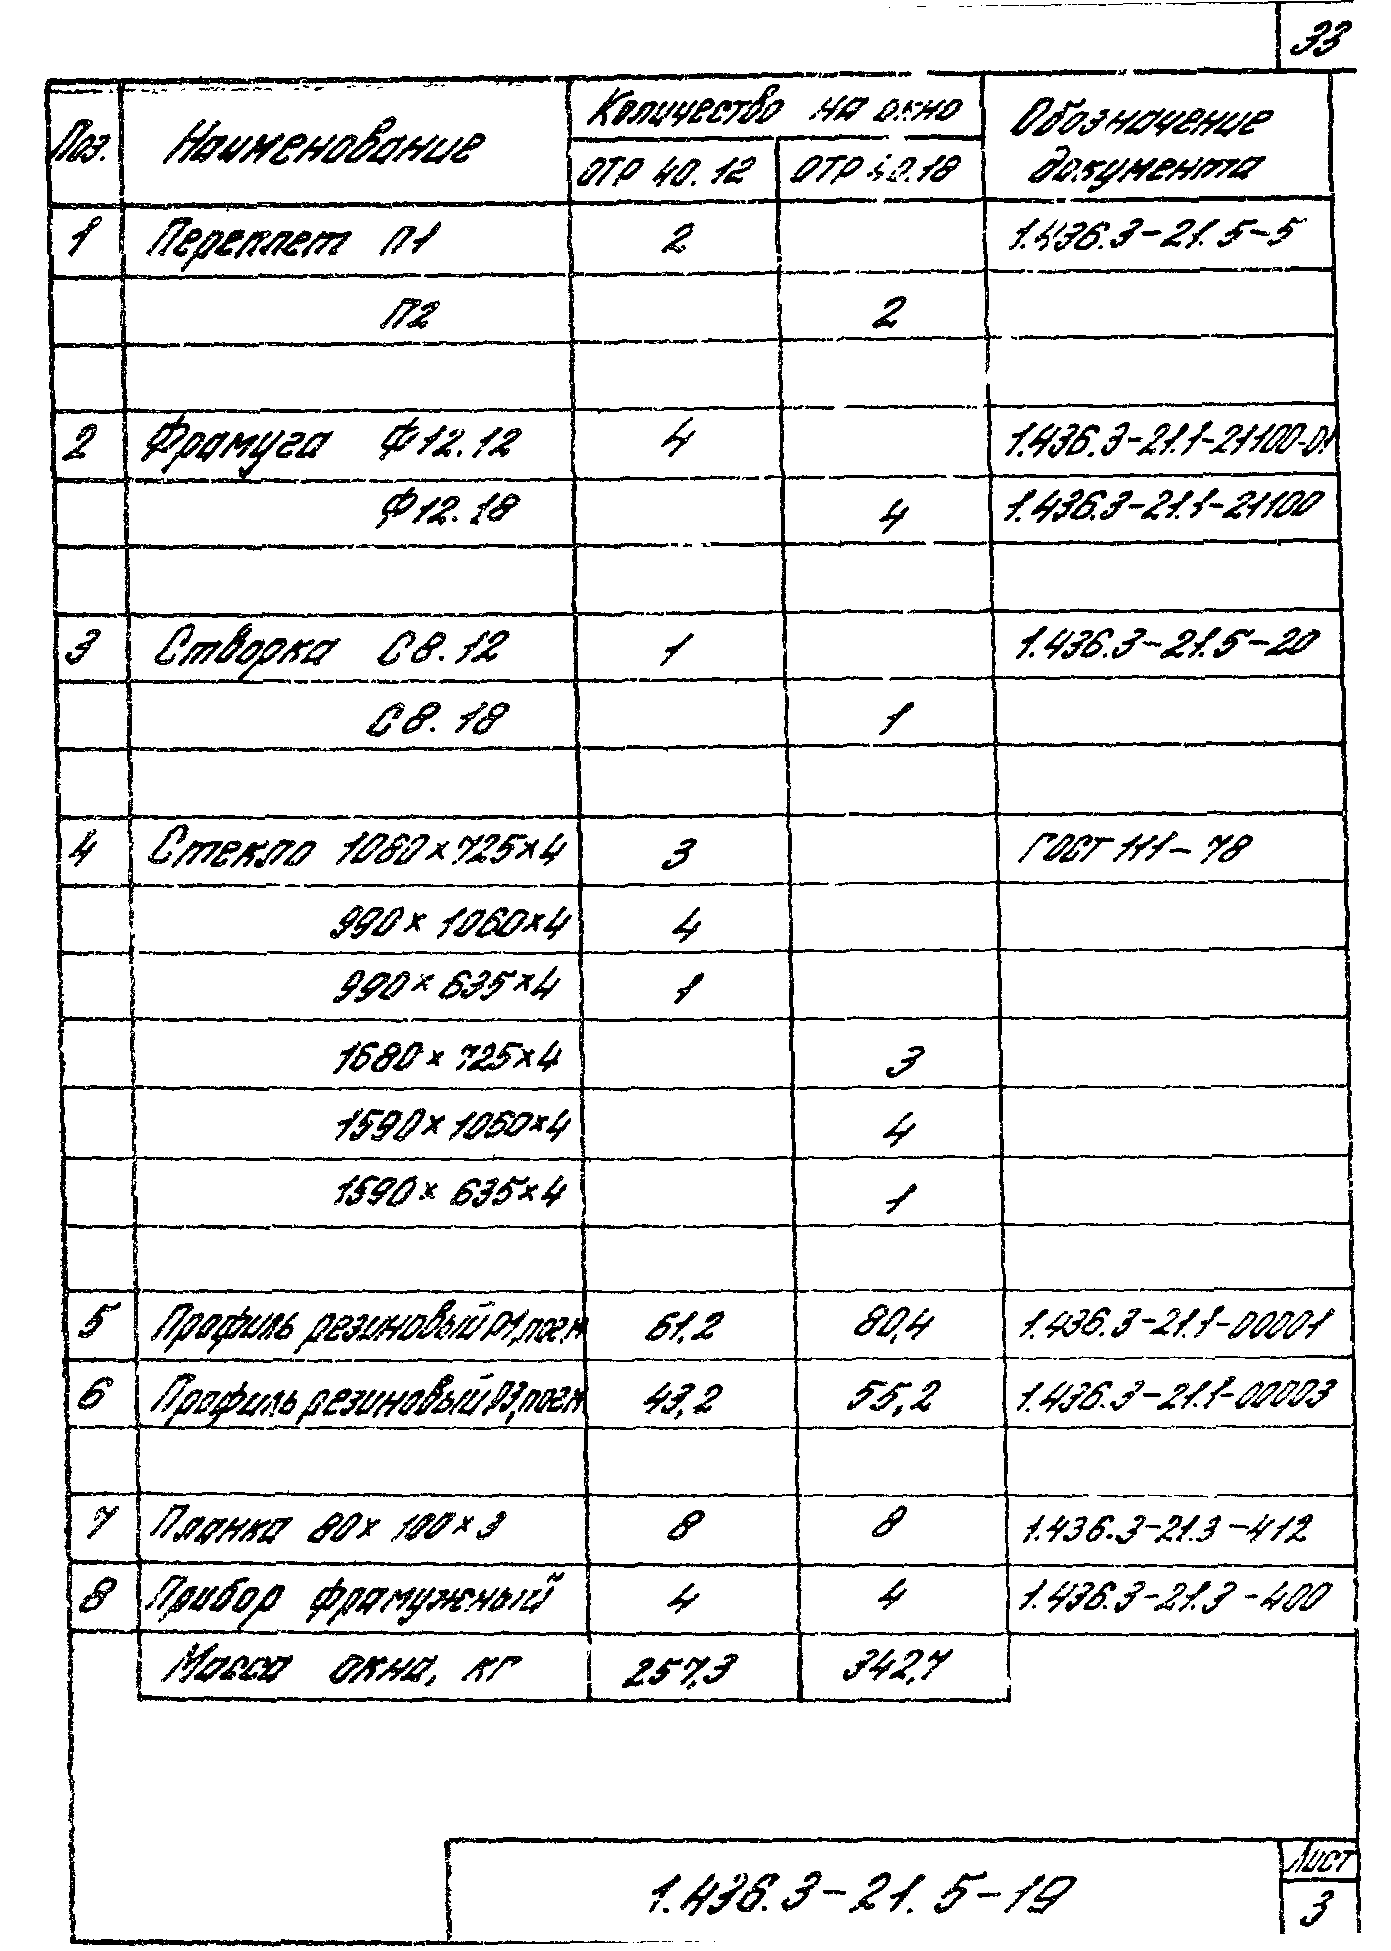 33
Поз. Наименование Количество на окно Обозначение документа
ОТР 40.12 ОТР 40.18
1 Переплет П1 2 1.436.3-21.5-5
П2 2
2 Фрамуга Ф12.12 4 1.436.3-21.1-21100-01
Ф12.18 4 1.436.3-21.1-21100
3 Створка С8.12 1 1.436.3-21.5-20
С8.18 1
4 Стекло 1080×725×4 3 ГОСТ 111-78
990×1060×4 4
990×635×4 1
1680×725×4 3
1590×1060×4 4
1590×635×4 1
5 Профиль резиновый Р1, пог.м 61,2 80,4 1.436.3-21.1-00001
6 Профиль резиновый Р3, пог.м 43,2 55,2 1.436.3-21.1-00003
7 Планка 80×100×3 8 8 1.436.3-21.3-412
8 Прибор фрамужный 4 4 1.436.3-21.3-400
Масса окна, кг 257,3 342,7
1.436.3-21.5-19
Лист
3